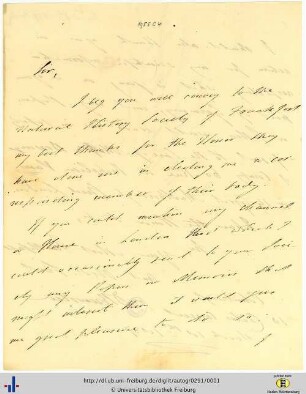 Sir,
I beg you will convey to the
Natural History Society of Frankfort
my best thanks for the Honor they
have done me in electing me a cor
responding member of their body.
If you could mention any channel
or House in London that I
could occasionally send to your Soci
ety any Papers or Memoirs that
might interest them it would give
me great pleasure to do so.
I
http://dl.ub.uni-freiburg.de/diglit/autogr0291/0001
© Universitätsbibliothek Freiburg